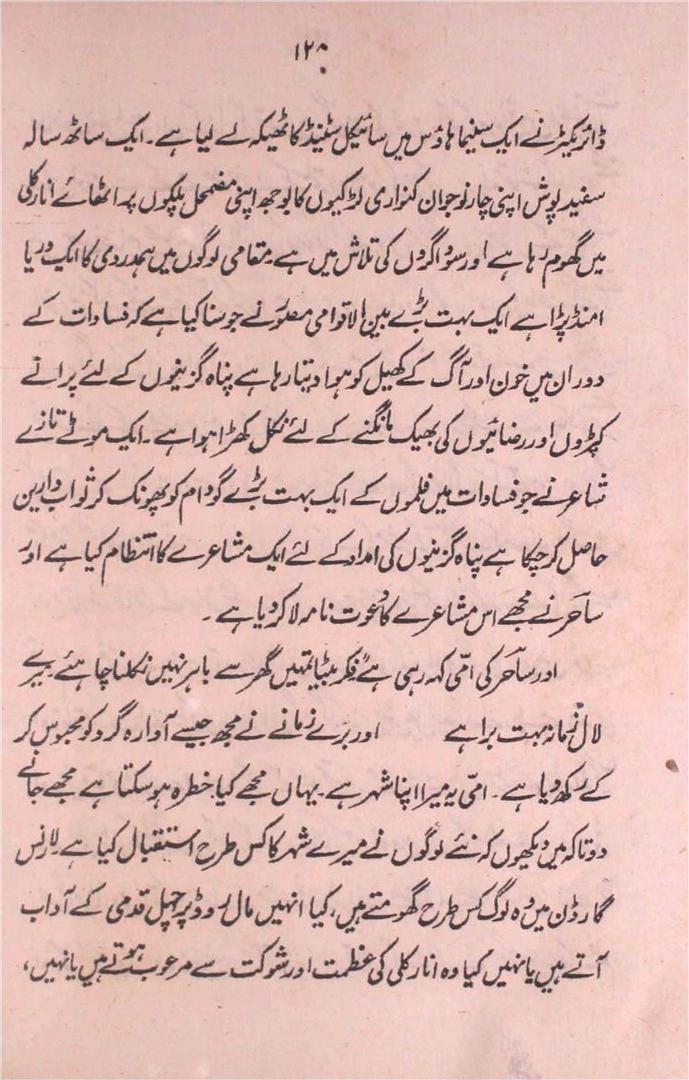 ۱۲۰
ڈائریکٹر نے ایک سنیما ہاؤس میں سائیکل سٹینڈ کا ٹھیکہ لے لیا ہے۔ ایک ساٹھ سالہ
سفید پوش اپنی چار نوجوان کنواری لڑکیوں کا بوجھ اپنی مضمحل پلکوں پر اٹھائے انارکلی
میں گھوم رہا ہے اور سوداگروں کی تلاش میں ہے۔ مقامی لوگوں میں ہمدردی کا ایک دریا
امنڈ پڑا ہے ایک بہت بڑے بین الاقوامی مصور نے جو سنا گیا ہے کہ فسادات کے
دوران میں خون اور آگ کے کھیل کو ہوا دیتا رہا ہے پناہ گزینوں کے لئے پرانے
کپڑوں اور رضائیوں کی بھیک مانگنے کے لئے نکل کھڑا ہوا ہے۔ ایک موٹے تازے
شاعر نے جو فسادات میں فلموں کے ایک بہت بڑے گودام کو پھونک کر ثواب دارین
حاصل کر چکا ہے پناہ گزینوں کی امداد کے لئے ایک مشاعرے کا انتظام کیا ہے اور
ساحر نے مجھے اس مشاعرے کا دعوت نامہ لا کر دیا ہے۔
اور ساحر کی امّی کہہ رہی ہے فکر بیٹا تمہیں گھر سے باہر نہیں نکلنا چاہئے میرے
لال زمانہ بہت برا ہے اور برے زمانے نے مجھ جیسے آوارہ گرد کو محبوس کر
کے رکھ دیا ہے۔ امّی یہ میرا اپنا شہر ہے۔ یہاں مجھے کیا خطرہ ہو سکتا ہے مجھے جانے
دو تاکہ میں دیکھوں کہ نئے لوگوں نے میرے شہر کا کس طرح استقبال کیا ہے۔ لارنس
گارڈن میں وہ لوگ کس طرح گھومتے ہیں، کیا انہیں مال روڈ پر چہل قدمی کے آداب
آتے ہیں یا نہیں کیا وہ انارکلی کی عظمت اور شوکت سے مرعوب ہوتے ہیں یا نہیں،